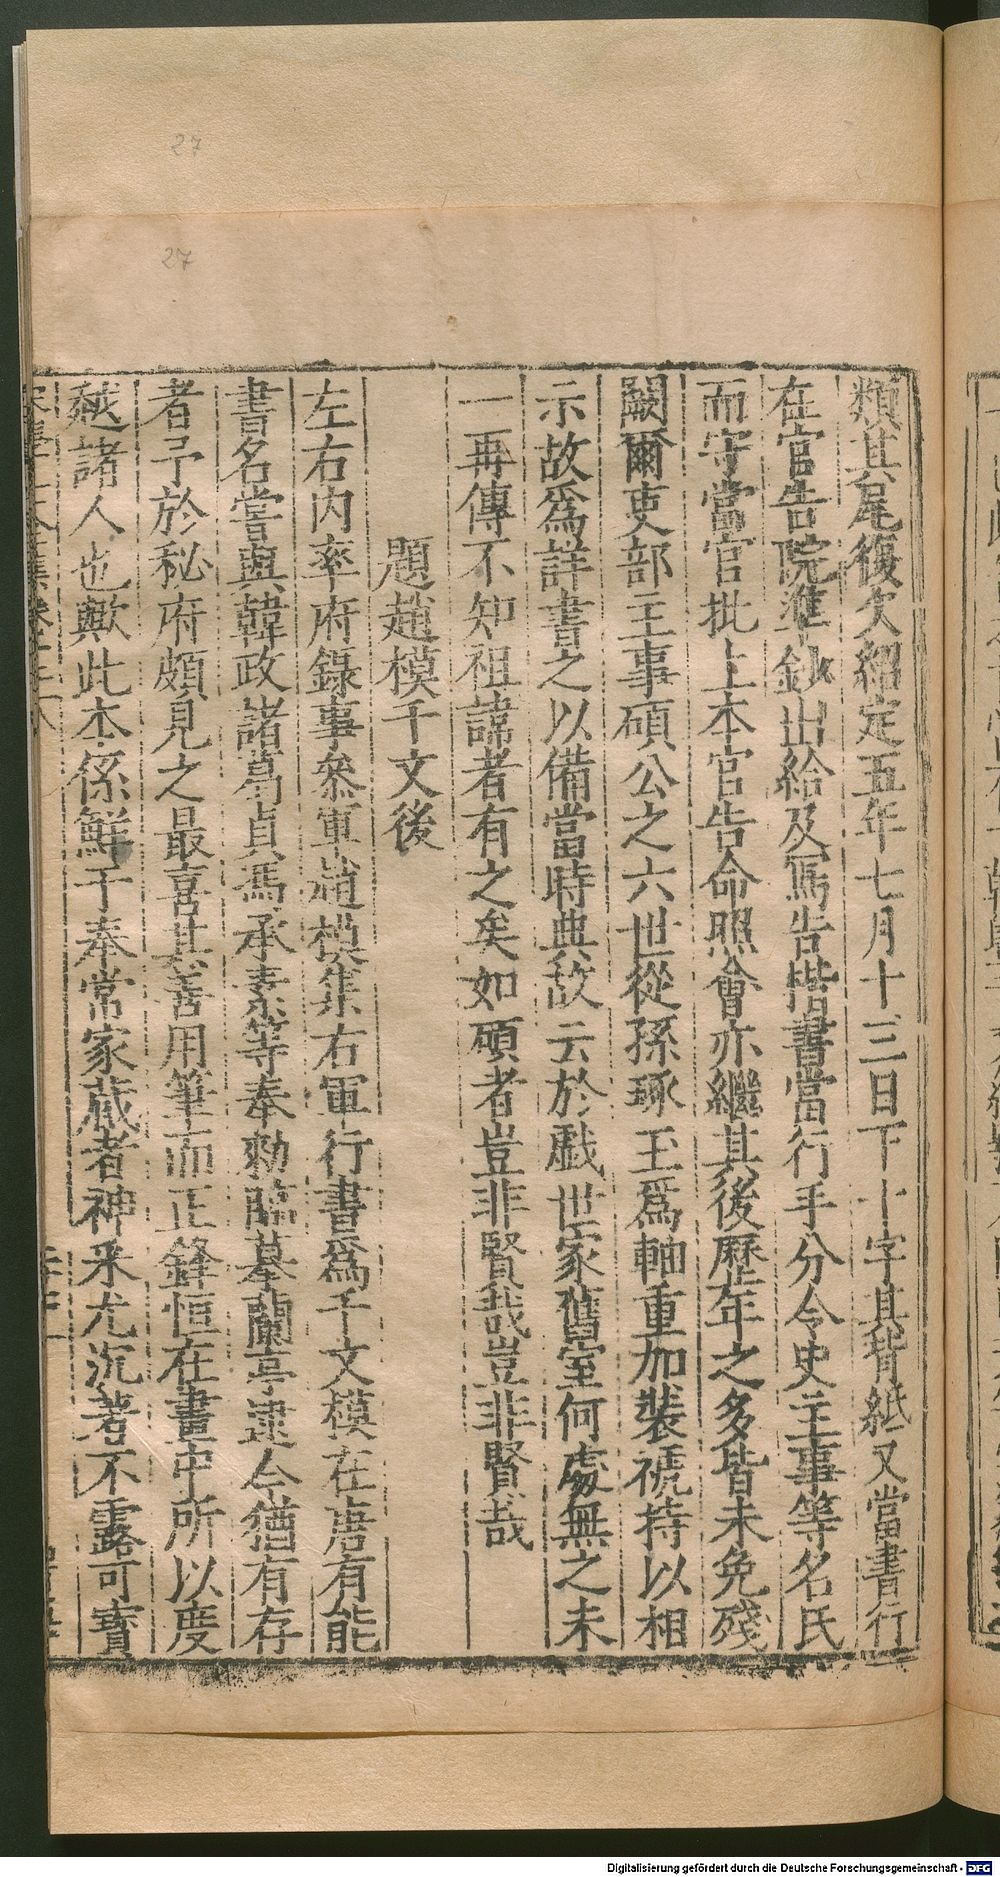 27
27
類其尾復欠紹定五年七月十三日下十字其背紙又當書行
在官告院進鈔出給及寫告楷書當行手分令史主事等名氏
而守當官批上本官告命照會亦繼其後歷年之多皆未免殘
闕爾吏部主事碩公之六世從孫琢玉爲軸重加裝褫持以相
示故爲詳書之以備當時典故云於戲世家舊室何處無之未
一再傳不知祖諱者有之矣如碩者豈非賢哉豈非賢哉
題趙模千文後
左右內率府錄事參軍趙模集右軍行書爲千文模在唐有能
書名嘗與韓政諸葛貞馮承素等奉勑臨摹蘭亭逮今猶有存
者予於秘府頗見之最喜其善用筆而正鋒恒在畫中所以度
越諸人也歟此本係鮮于奉常家藏者神采尤沉著不露可寶
Digitalisierung gefördert durch die Deutsche Forschungsgemeinschaft - DFG